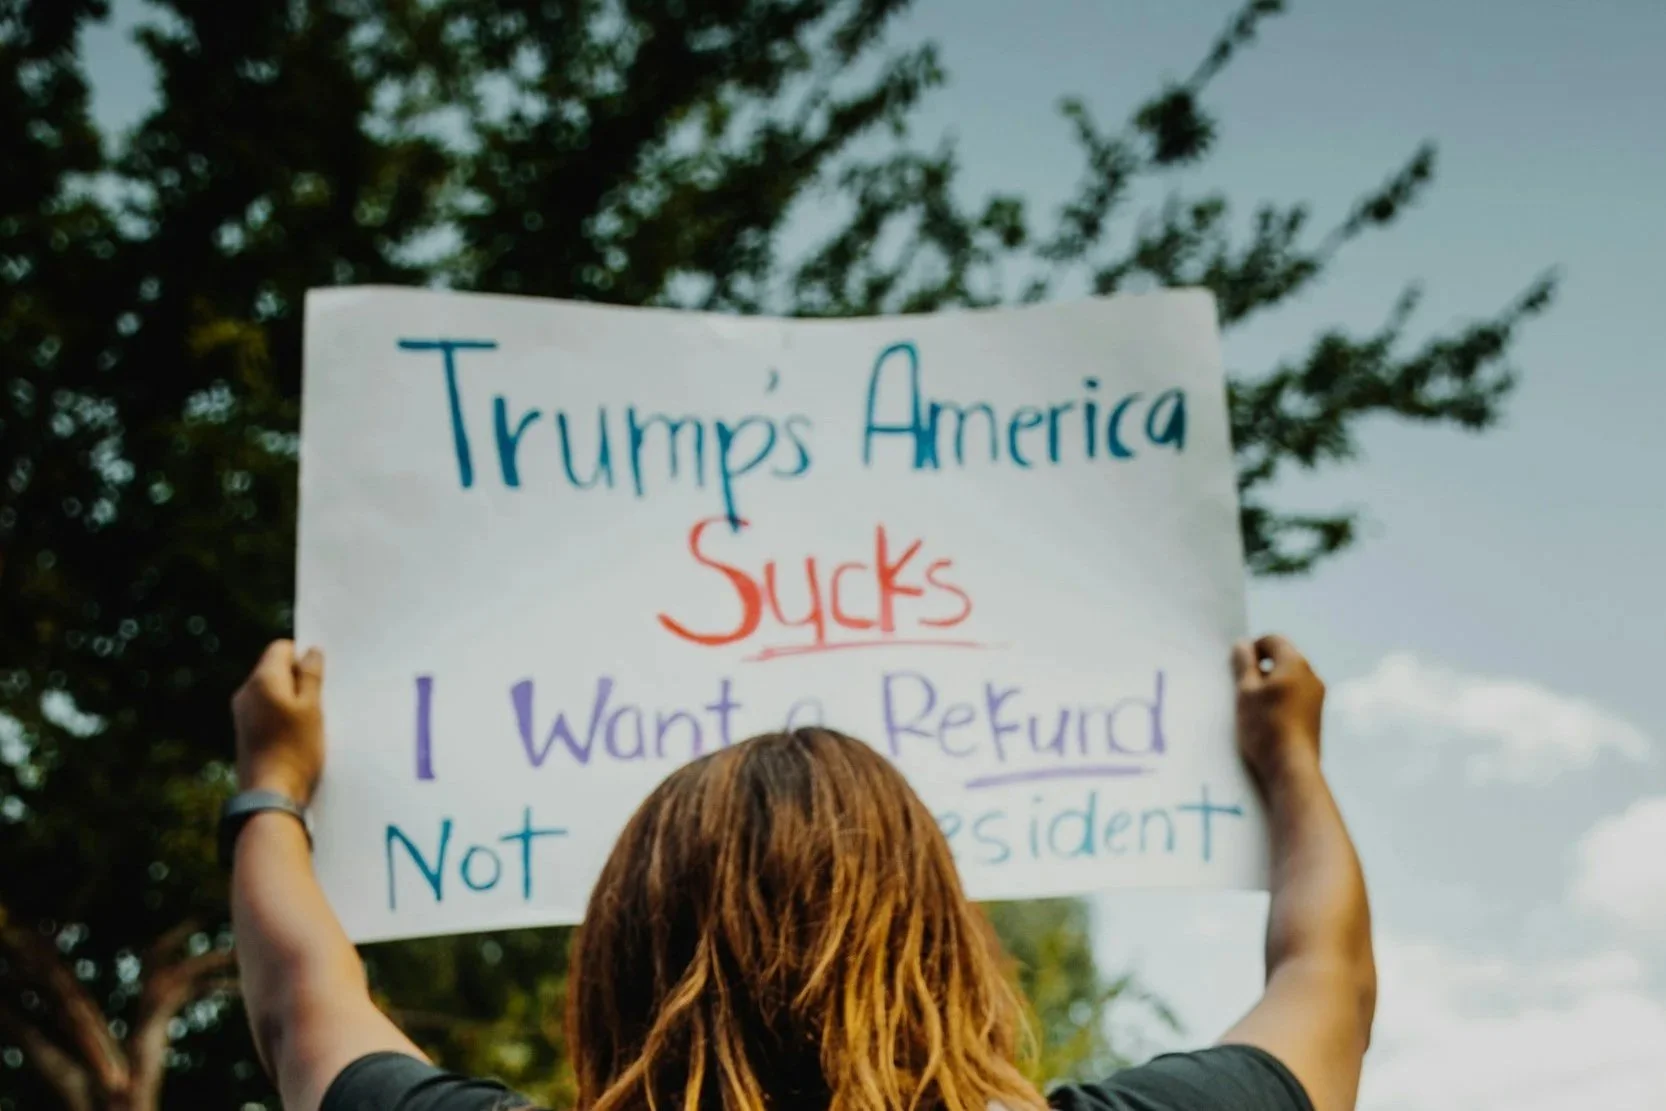 Trump's America
Sucks
I Want a Refund
Not esident